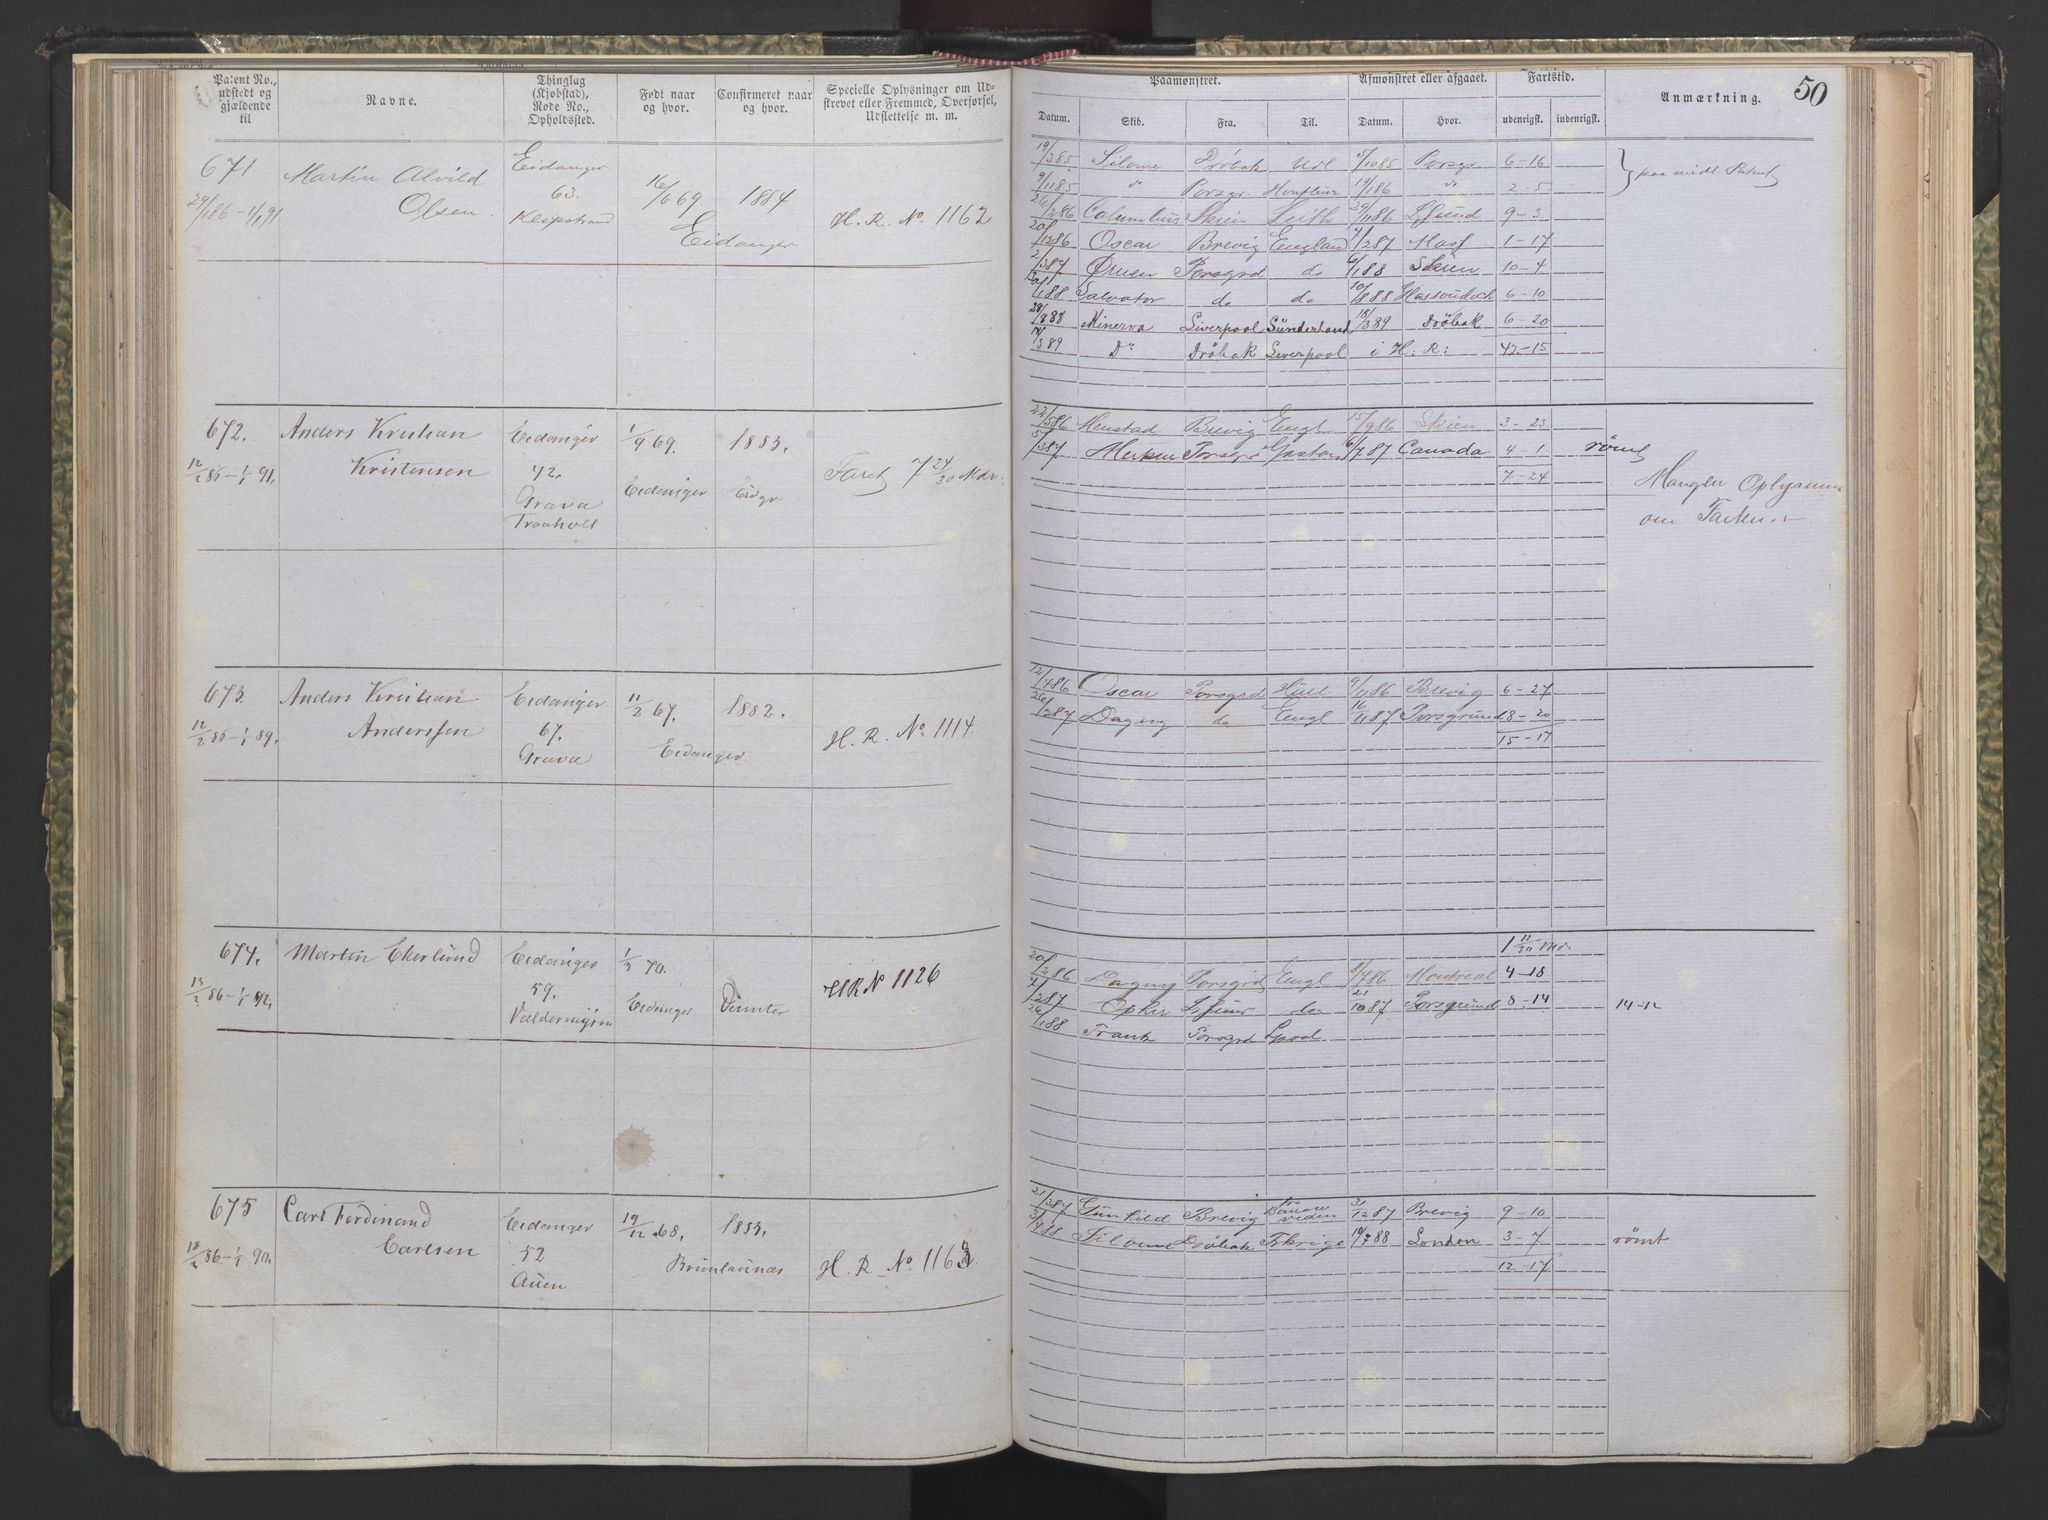 50
Patent No., udstedt og gjældende til
Navne.
Thinglag (Kjøbstad), Rode No., Opholdssted.
Født naar og hvor.
Confirmeret naar og hvor.
Specielle Oplysninger om Udstrevet eller Fremmed, Overførsel, Udslettelse m. m.
Paamønstret.
Afmønstret eller afgaaet.
Fartstid.
Anmærkning.
Datum. Skib. Fra. Til. Datum. Hvor. udenrigsk. indenrigsk.
671 Martin Alvild Eidanger 16/6 69 1884 H. R. No. 1162
29/1 86 - 1/1 91 Olsen. 63. Eidanger
Klepstrand
19/3 85 Silome Dröbak Udl 5/10 85 Porsgr 6-16
9/11 85 do Porsgr. Honfleur 19/1 86 do 2-5
paa midl. Patent
26/2 86 Columbus Skien Leith 29/11 86 9-3
20/12 86 Oscar Brevig England 7/2 87 1-17
2/3 87 Porsgrd do 6/1 88 Skien 10-4
Salvator do do 10/8 88 6-10
28/8 88 Minerva Liverpool Sünderland 18/3 89 Dröbak 6-20
19/3 89 Do Dröbak Liverpool i H. R: 42-15
672. Anders Kristian Eidanger 1/9 69. 1883.
12/2 86 - 1/1 91. Kristensen 42. Eidanger Eidgr Faret 7 24/30 Mdr.
Grava
Traaholt
22/5 86 Menstad Brevig Engl 15/9 86 Skien 3-23
5/3 87 Porsgr 6/7 87 Canada 4-1 römt
7-24
Mangler Oplysning
om Farten.
673. Anders Kristian Eidanger 11/2 67. 1882.
12/2 86 - 1/1 89. Anderssen 67. Eidanger H. R. No. 1114
Grava
12/4 86 Oscar Porsgrd Hull 9/11 86 Brevig 6-27
26/2 87 Dagny do Engl 16/11 87 Porsgrund 8-20
15-17
674. Martin Ekerlund Eidanger 1/3 70.
13/2 86 - 1/1 92. 59. Eidanger HR No 1126
Valdermyren
1 11/30 Md.
20/2 86 Dagny Porsgrd Engl 8/7 86 Montreal 4-18
4/2 87 do 21/10 87 Porsgrund 8-14 14-12
26/1 88 Frank Porsgrd
675 Carl Ferdinand Eidanger 19/12 68. 1883.
18/2 86 - 1/1 90. Carlsen 52 Brunlaunæs H. R. No. 1163
Auen
21/3 87 Gunhild Brevig 31/12 87 Brevig 9-10
31/3 88 Silome Dröbak 10/7 88 London 3-7 römt
12-17